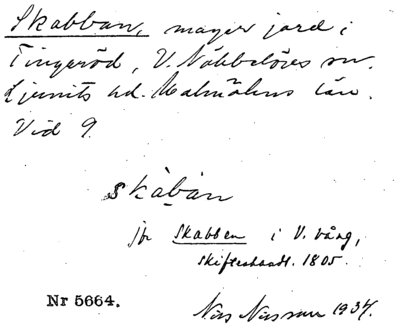 Skabban, mager jord i
Tingeröd, V. Nöbbelövs sn.
Ljunits hd. Malmöhus län.
Vid 9.
skàban
jfr Skabben i V. vång,
skifteshandl. 1805.
Nr 5664.
Nils Nilsson 1934.